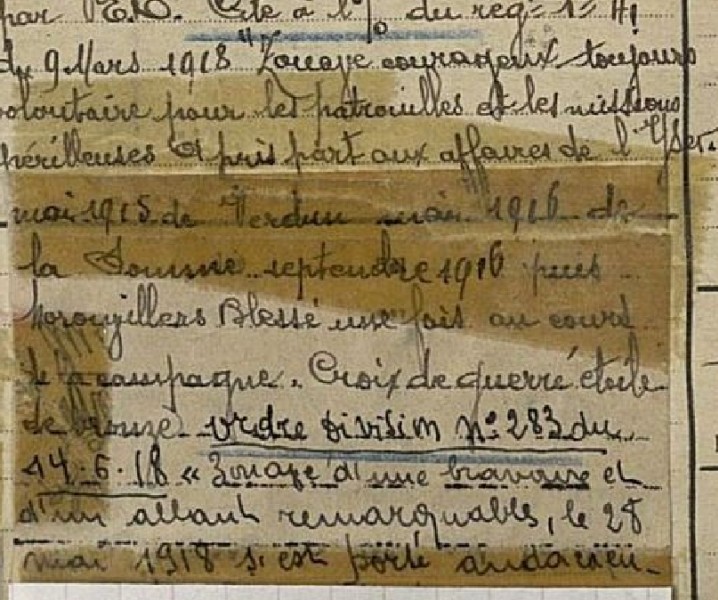 par E.D. Cité à l'o. du reg. 1er
du 9 Mars 1918 "Zouave courageux toujours
volontaire pour les patrouilles et les missions
périlleuses A pris part aux affaires de l'Yser.
mai 1915 de Verdun mai 1916 de
la Somme septembre 1916 puis
Blessé une fois au cours
de la campagne. Croix de guerre étoile
de bronze ordre Division N° 283 du
14.6.18 « Zouave d'une bravoure et
d'un allant remarquables, le 28
mai 1918 s'est porté audacieu-